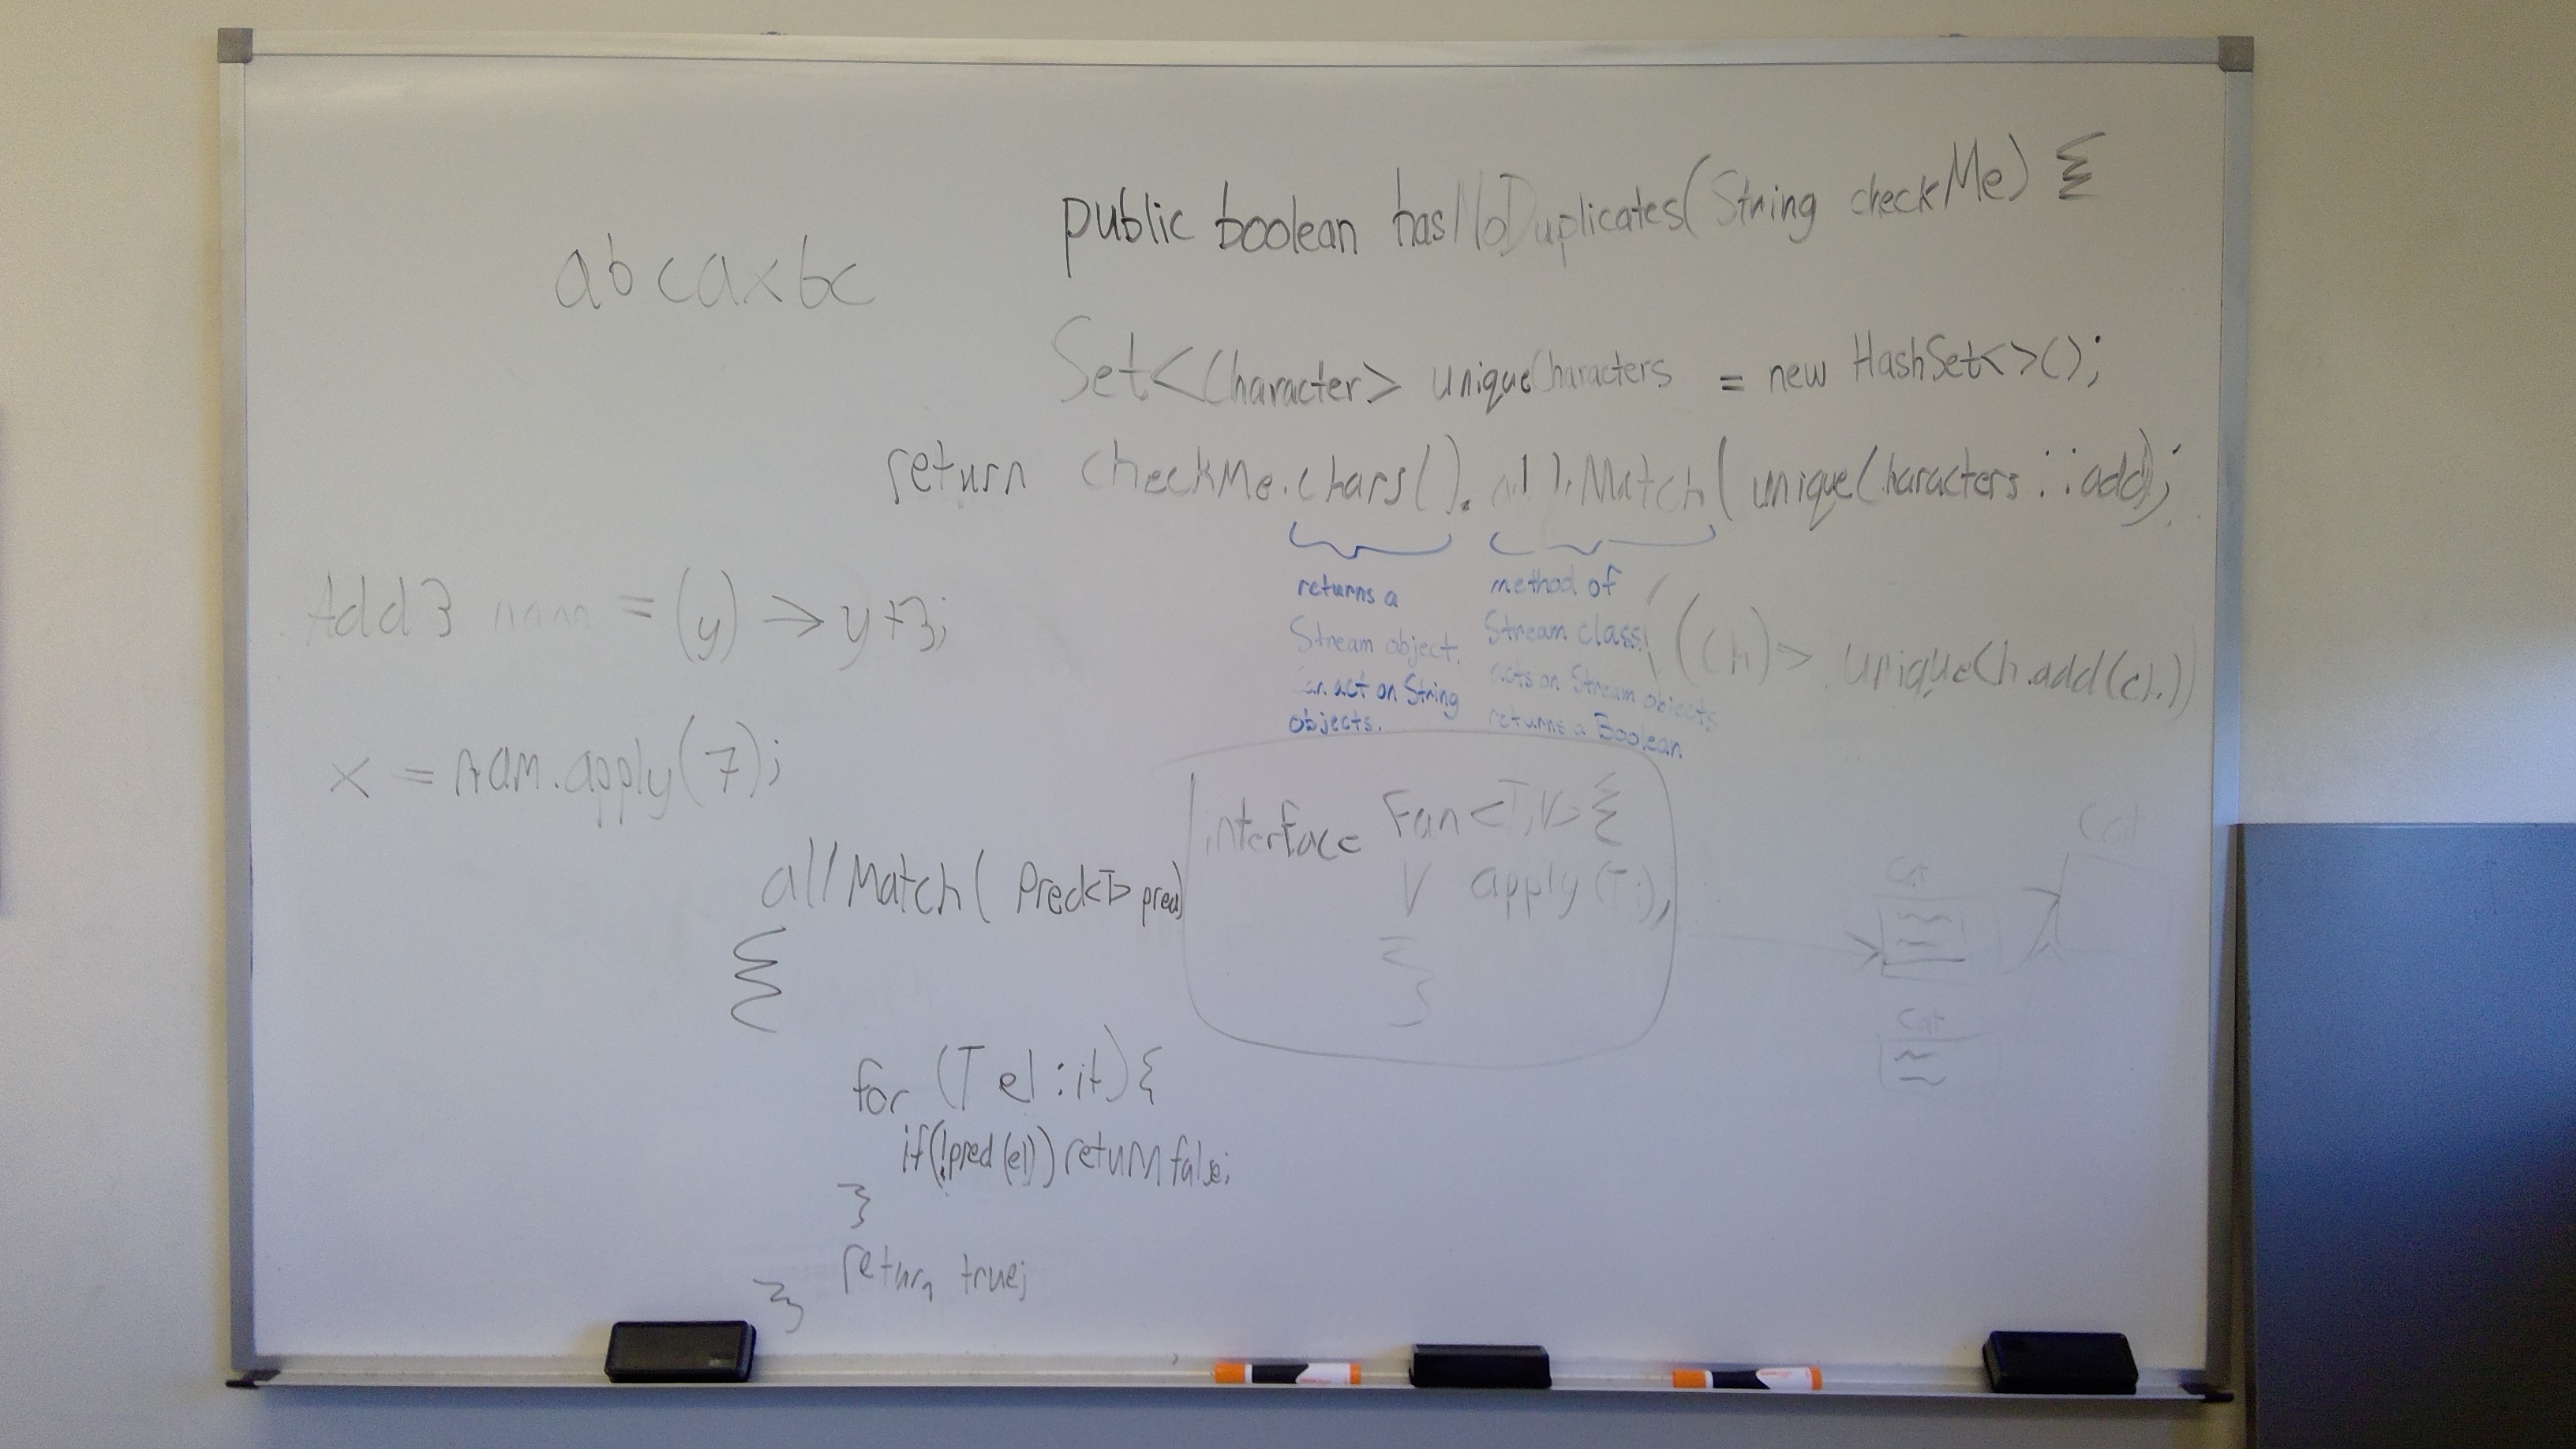 public boolean hasNoDuplicates(String checkMe) {
abcaxbc
Set<Character> uniqueCharacters = new HashSet<>();
return checkMe.chars().allMatch(uniqueCharacters::add);
returns a
Stream object.
can act on String
objects.
method of
Stream class.
acts on Stream objects
returns a Boolean
(ch)-> uniqueCh.add(ch))
Add3 nam = (y) -> y+3;
x = nam.apply(7);
interface Fun<T,V> {
V apply(T i);
}
allMatch( Pred<T> pred)
{
for (T el : it) {
if(!pred(el)) return false;
}
return true;
}
Cat
Cat
Cat